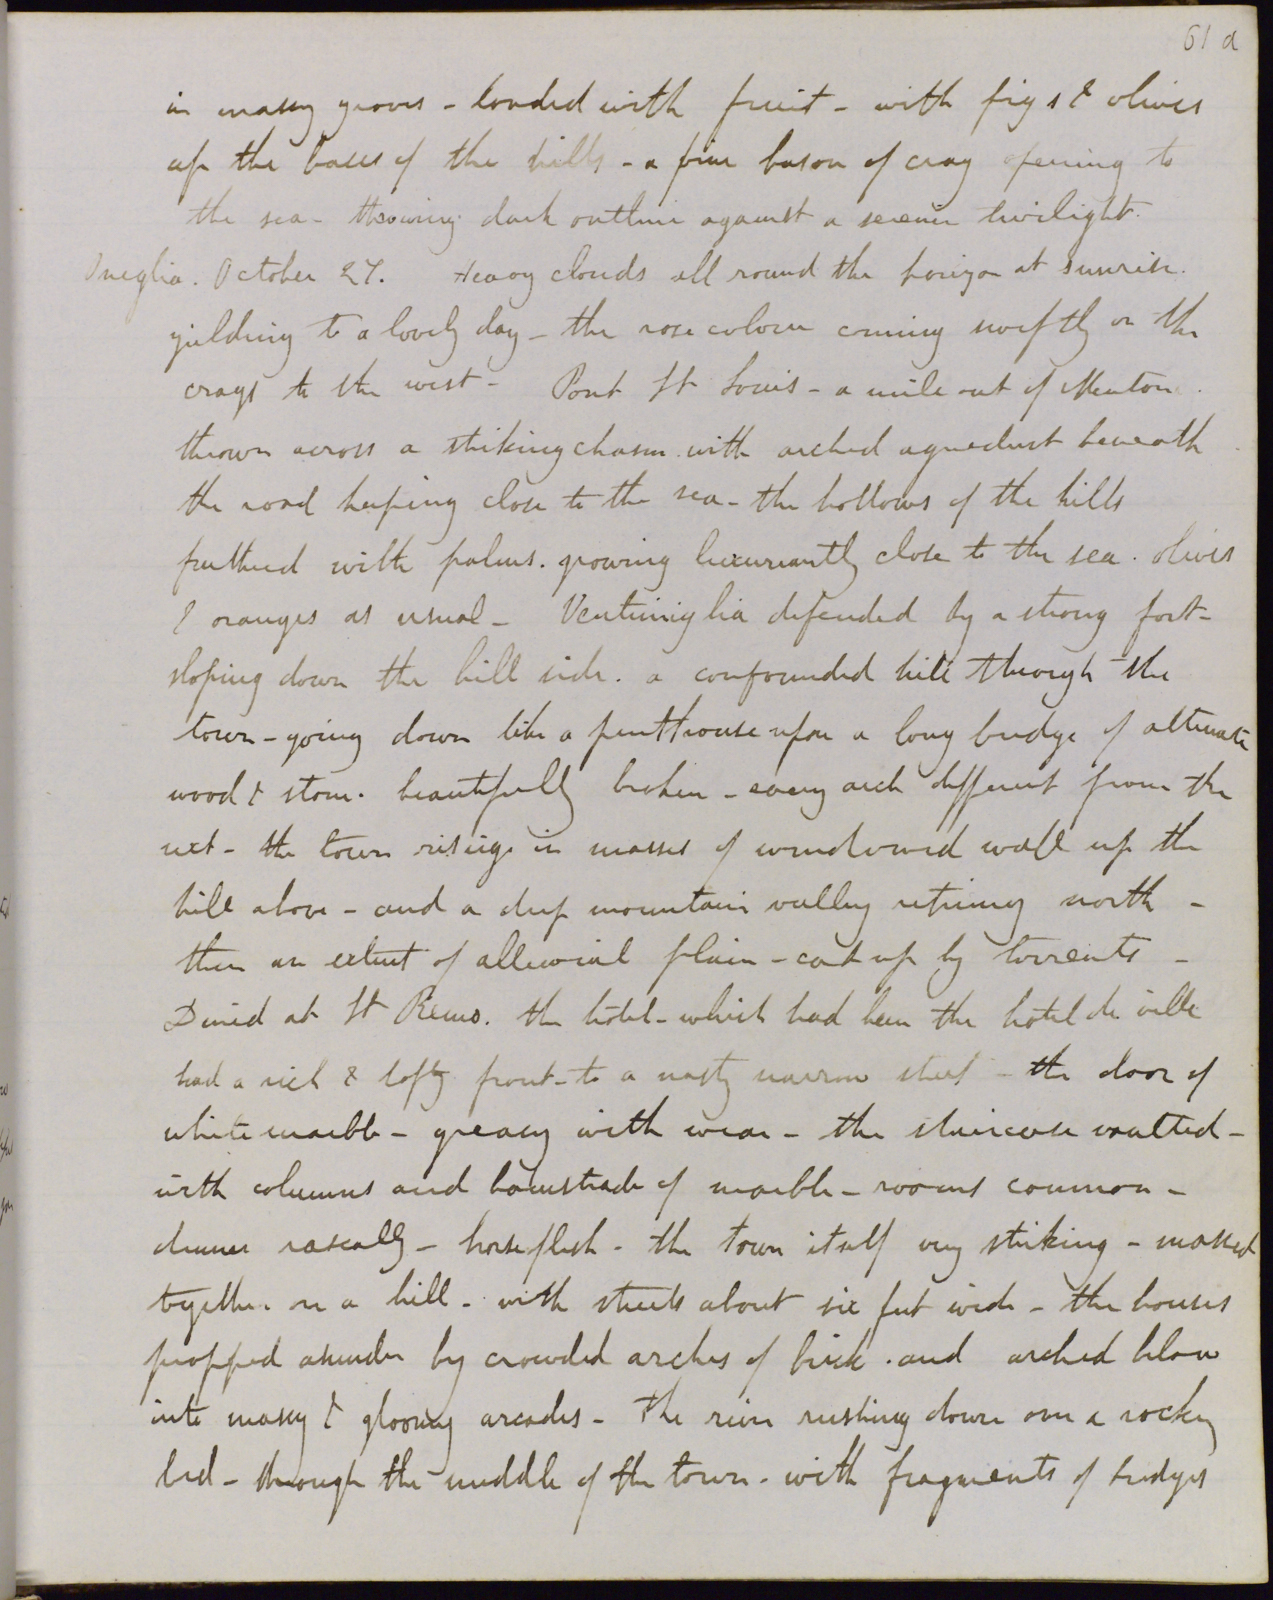 61 d
in massy groves - loaded with fruit - with figs & olives
up the bases of the hills - a fine bason of crag opening to
the sea - throwing dark outline against a serene twilight.
Oneglia. October 27. Heavy clouds all round the horizon at sunrise.
yielding to a lovely day - the rose colour coming swiftly on the
crags to the west - Pont St Louis - a mile out of Mentone.
thrown across a striking chasm. with arched aqueduct beneath
the road keeping close to the sea - the hollows of the hills
feathered with palms. growing luxuriantly close to the sea. olives
& oranges as usual - Ventimiglia defended by a strong fort -
sloping down the hill side. a confounded hill through the
town - going down like a penthouse upon a long bridge of alternate
wood & stone. beautifully broken - every arch different from the
next - the town rising in masses of windowed wall up the
hill above - and a deep mountain valley retiring north -
then an extent of alluvial plain - cut up by torrents -
Dined at St Remo. the hotel - which had been the hotel de ville
had a rich & lofty front - to a nasty narrow street - the door of
white marble - greasy with wear - the staircase vaulted -
with columns and balustrade of marble - rooms common -
dinner rascally - horseflesh - the town itself very striking - massed
together on a hill - with streets about six feet wide - the houses
propped asunder by crowded arches of brick. and arched below
into massy & gloomy arcades - The river rushing down over a rocky
bed - through the middle of the town. with fragments of bridges